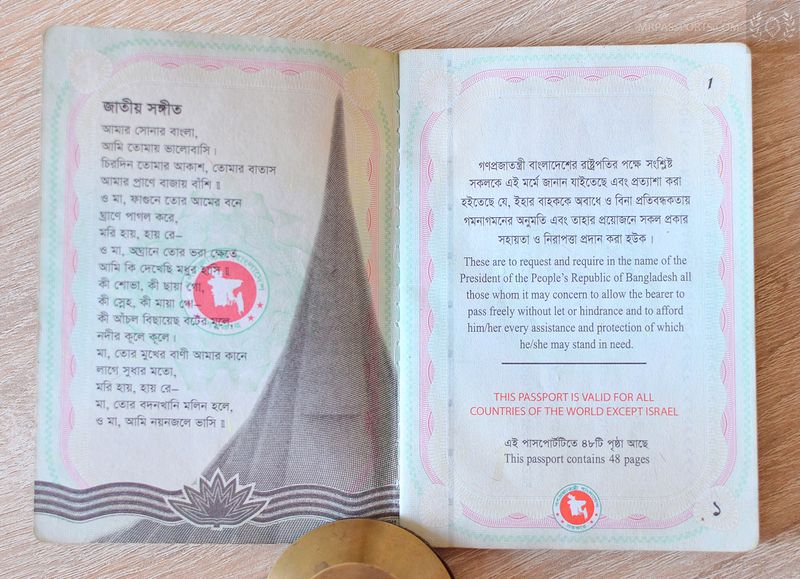 MRPASSPORTS.COM
জাতীয় সঙ্গীত
আমার সোনার বাংলা,
আমি তোমায় ভালোবাসি।
চিরদিন তোমার আকাশ, তোমার বাতাস
আমার প্রাণে বাজায় বাঁশি॥
ও মা, ফাগুনে তোর আমের বনে
ঘ্রাণে পাগল করে,
মরি হায়, হায় রে–
ও মা, অঘ্রানে তোর ভরা ক্ষেতে,
আমি কি দেখেছি মধুর হাসি॥
কী শোভা, কী ছায়া গো,
কী স্নেহ, কী মায়া গো–
কী আঁচল বিছায়েছ বটের মূলে,
নদীর কূলে কূলে।
মা, তোর মুখের বাণী আমার কানে
লাগে সুধার মতো,
মরি হায়, হায় রে–
মা, তোর বদনখানি মলিন হলে,
ও মা, আমি নয়নজলে ভাসি॥
1
গণপ্রজাতন্ত্রী বাংলাদেশের রাষ্ট্রপতির পক্ষে সংশ্লিষ্ট
সকলকে এই মর্মে জানান যাইতেছে এবং প্রত্যাশা করা
হইতেছে যে, ইহার বাহককে অবাধে ও বিনা প্রতিবন্ধকতায়
গমনাগমনের অনুমতি এবং তাহার প্রয়োজনে সকল প্রকার
সহায়তা ও নিরাপত্তা প্রদান করা হউক।
These are to request and require in the name of the
President of the People's Republic of Bangladesh all
those whom it may concern to allow the bearer to
pass freely without let or hindrance and to afford
him/her every assistance and protection of which
he/she may stand in need.
THIS PASSPORT IS VALID FOR ALL
COUNTRIES OF THE WORLD EXCEPT ISRAEL
এই পাসপোর্টটিতে ৪৮টি পৃষ্ঠা আছে
This passport contains 48 pages
১